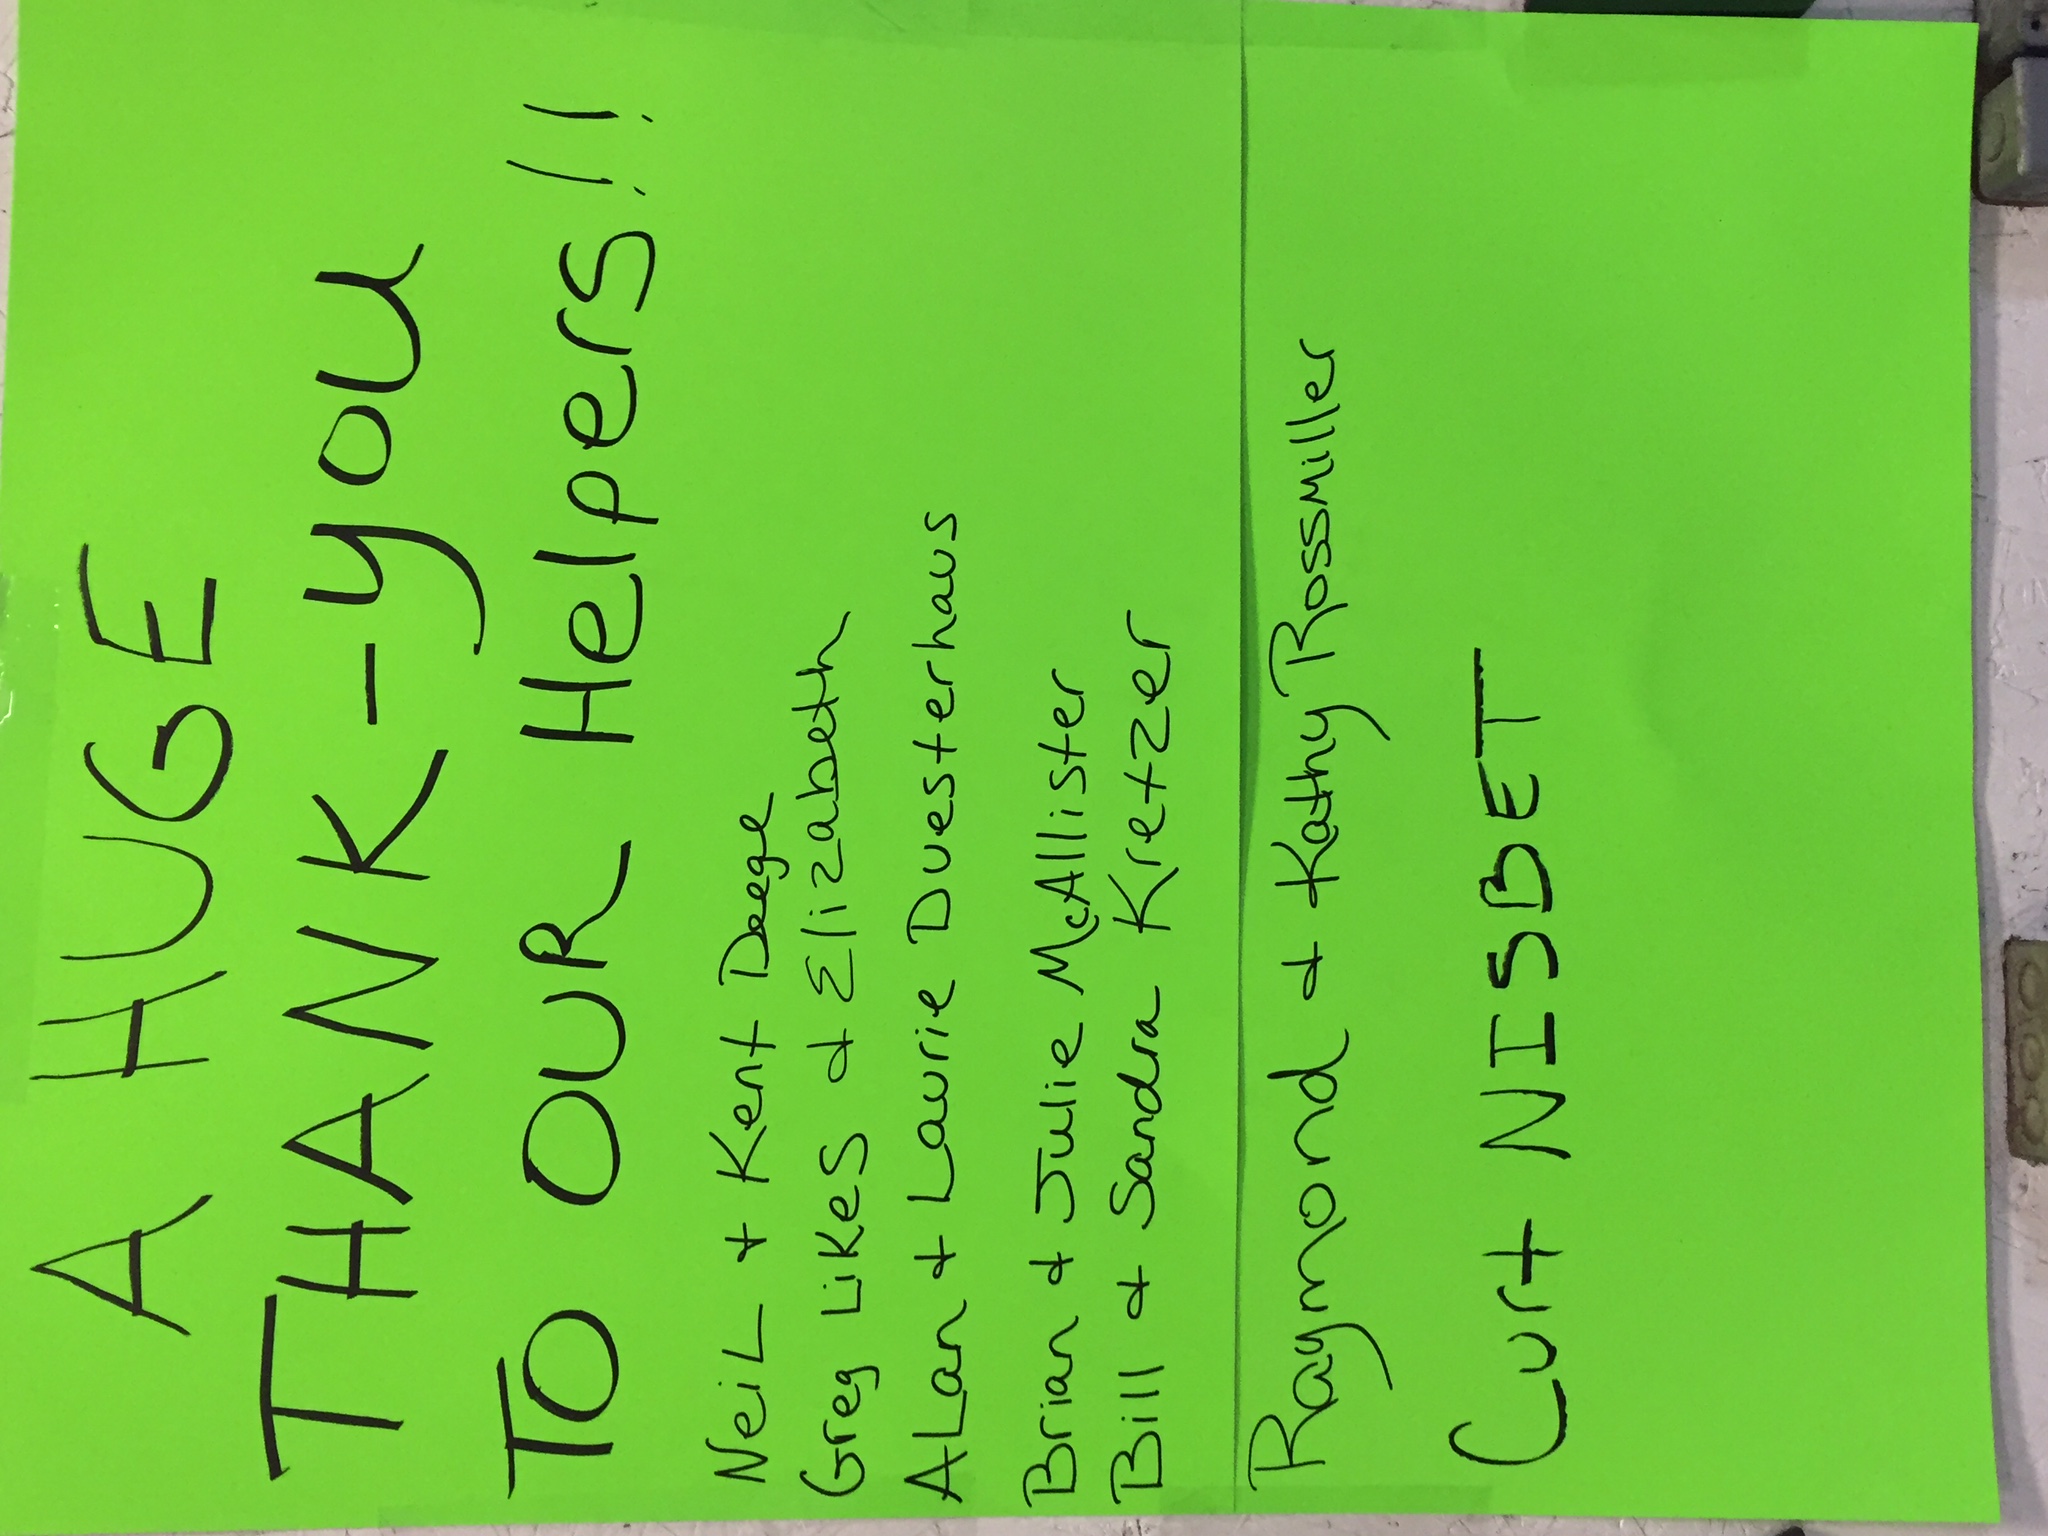 A HUGE
THANK-you
TO OUR Helpers!!
NeiL + Kent Deege
Greg LikeS + Elizabeth
ALan + Laurie Duesterhaus
Brian + Julie McAllister
Bill + Sandra Kretzer
Raymond + Kathy Rossmiller
Curt NISBET